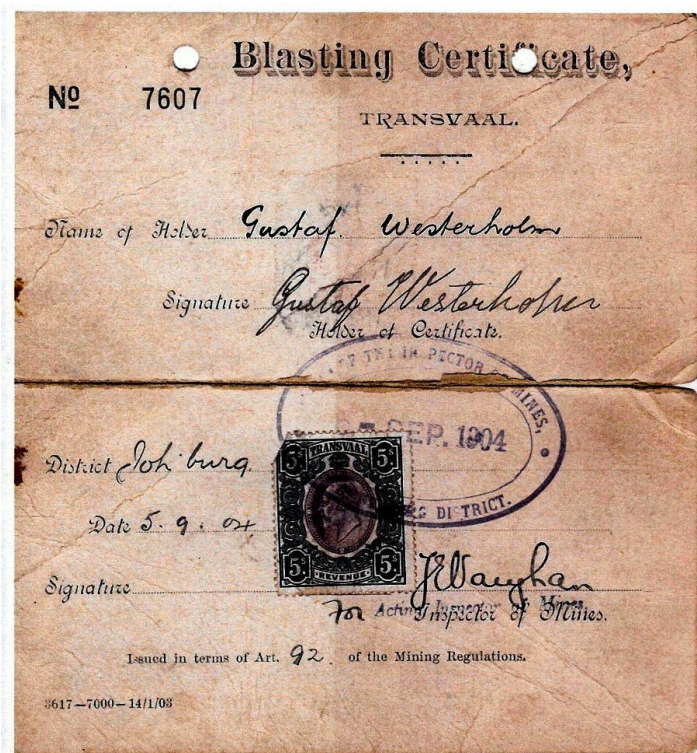 Blasting Certificate,
No 7607
TRANSVAAL.
Name of Holder Gustaf. Westerholm
Signature Gustaf Westerholm
Holder of Certificate.
OF THE INSPECTOR OF MINES,
SEP. 1904
DISTRICT.
District Joh'burg
TRANSVAAL
5s 5s
5s 5s
REVENUE
Date 5. 9. 04
Signature JEVaughan
For Acting Inspector of Mines
Inspector of Mines.
Issued in terms of Art. 92. of the Mining Regulations.
3617—7000—14/1/03